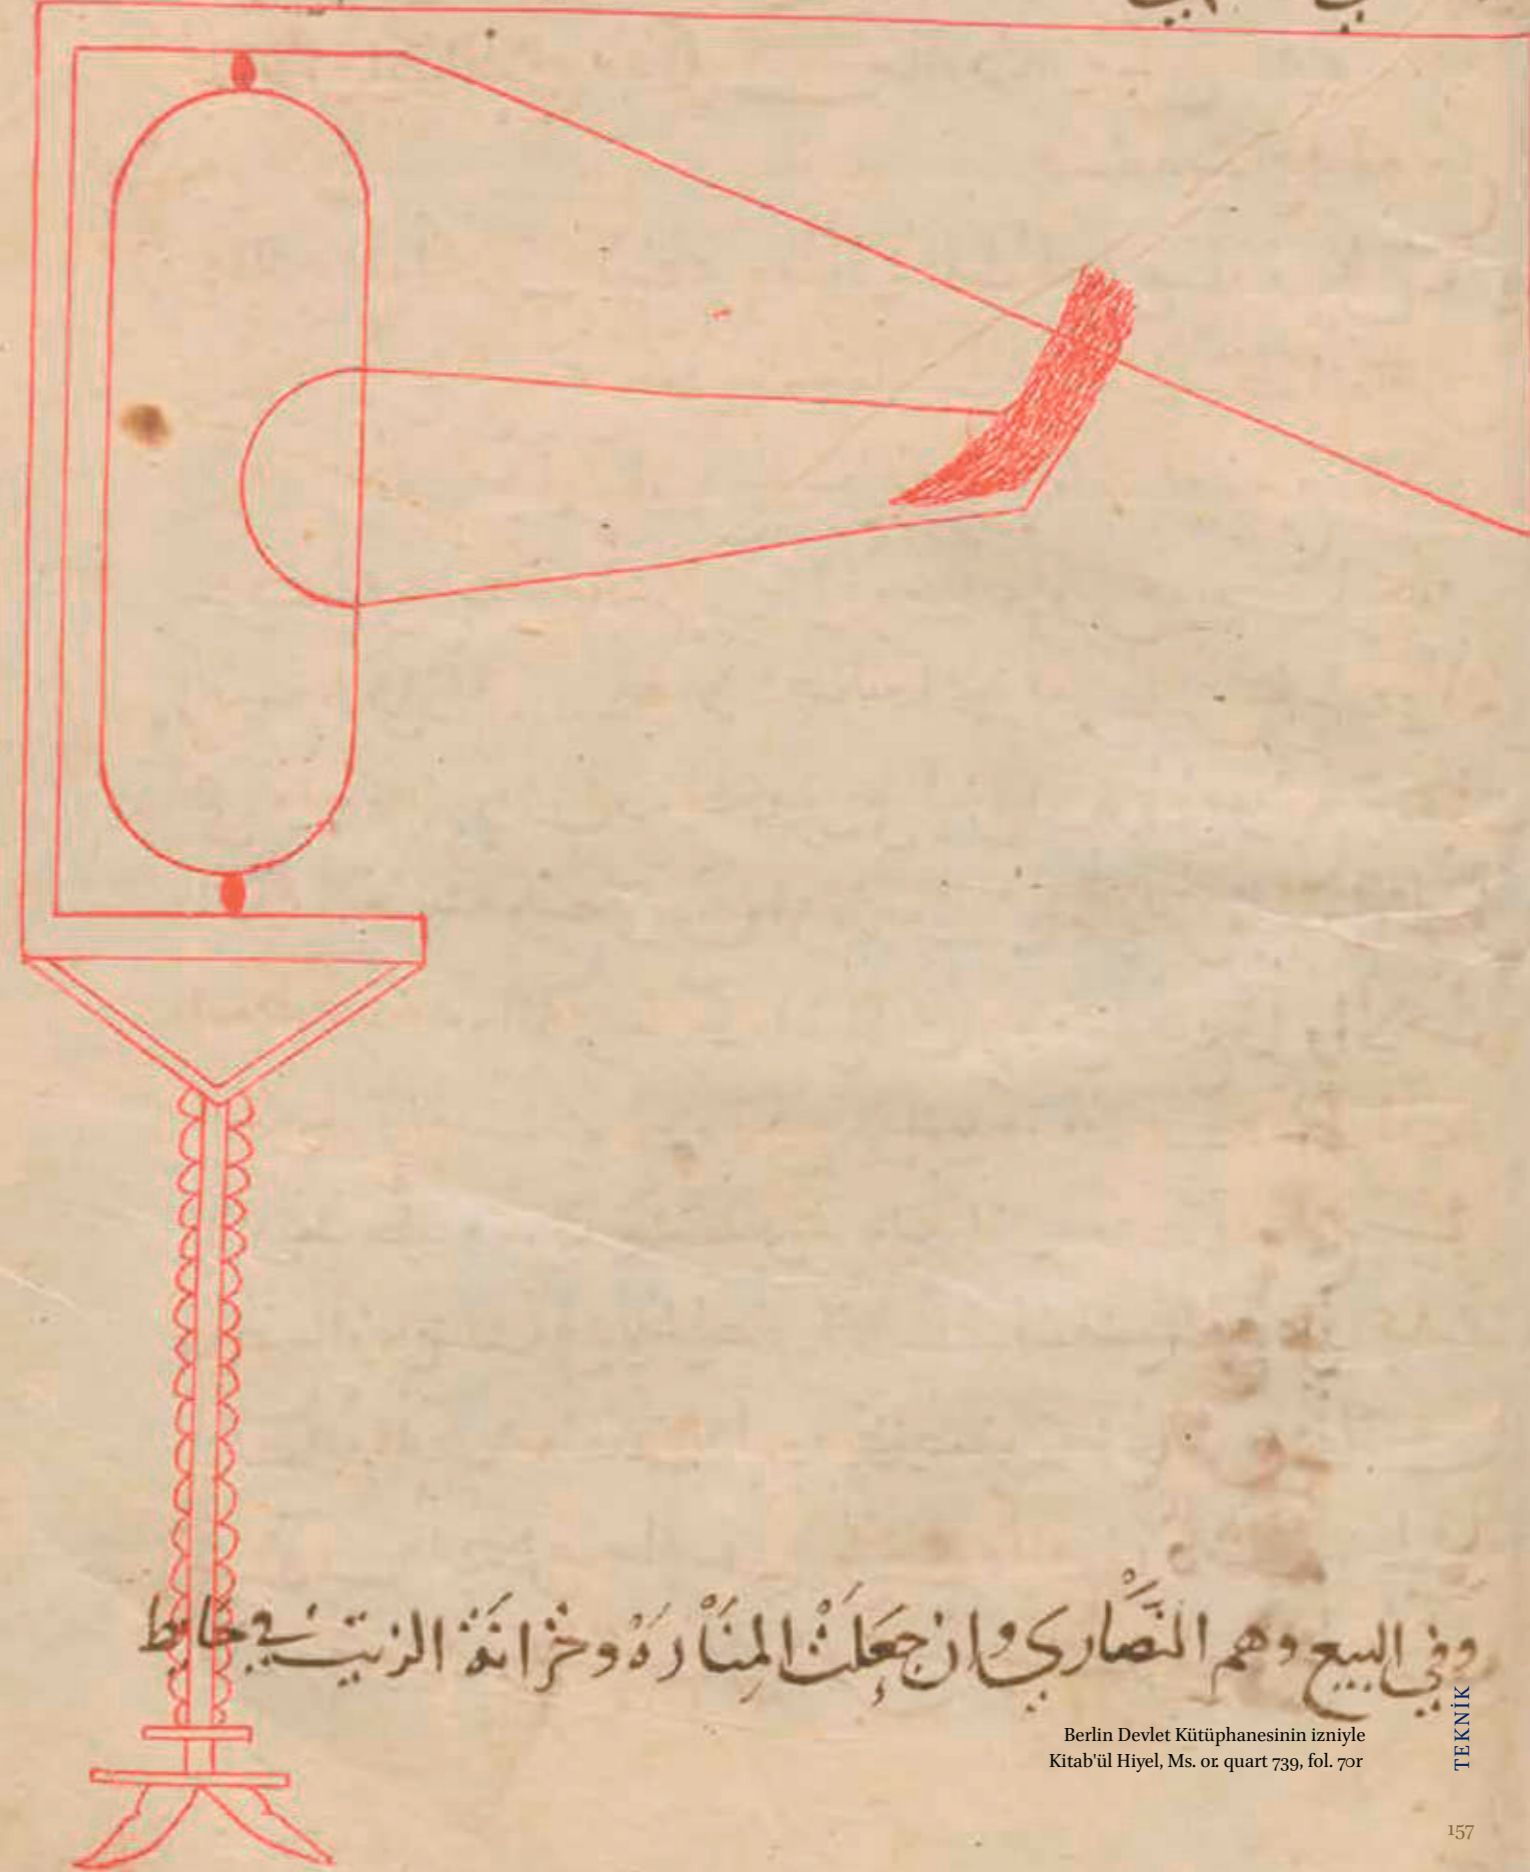 وفي البيع وهم النَّصَارى وان جعَلتْ المِنَارَة وخزانَة الزيت في حايط
Berlin Devlet Kütüphanesinin izniyle
Kitab'ül Hiyel, Ms. or. quart 739, fol. 70r
TEKNİK
157